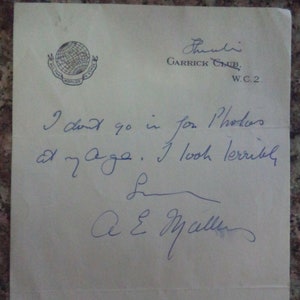 GARRICK CLUB,
W.C.2
I don't go in for Photos
at my age. I look terribly
A E Matthews